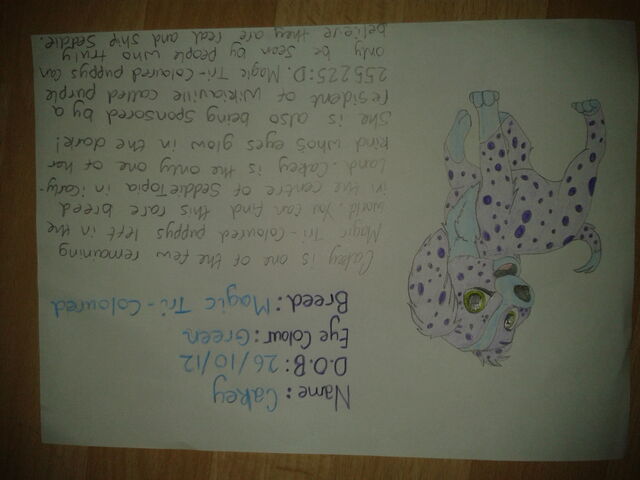 Name: Cakey
D.O.B: 26/10/12
Eye Colour: Green
Breed: Magic Tri-Coloured
Cakey is one of the few remaining
Magic Tri-Coloured puppys left in the
world. You can find this rare breed
in the centre of SeddieTopia in iCarly-
Land. Cakey is the only one of her
kind who's eyes glow in the dark!
She is also being sponsored by a
resident of Wikiaville called purple
255225:D. Magic Tri-Coloured puppys can
only be seen by people who truly
believe they are real and ship Seddie.